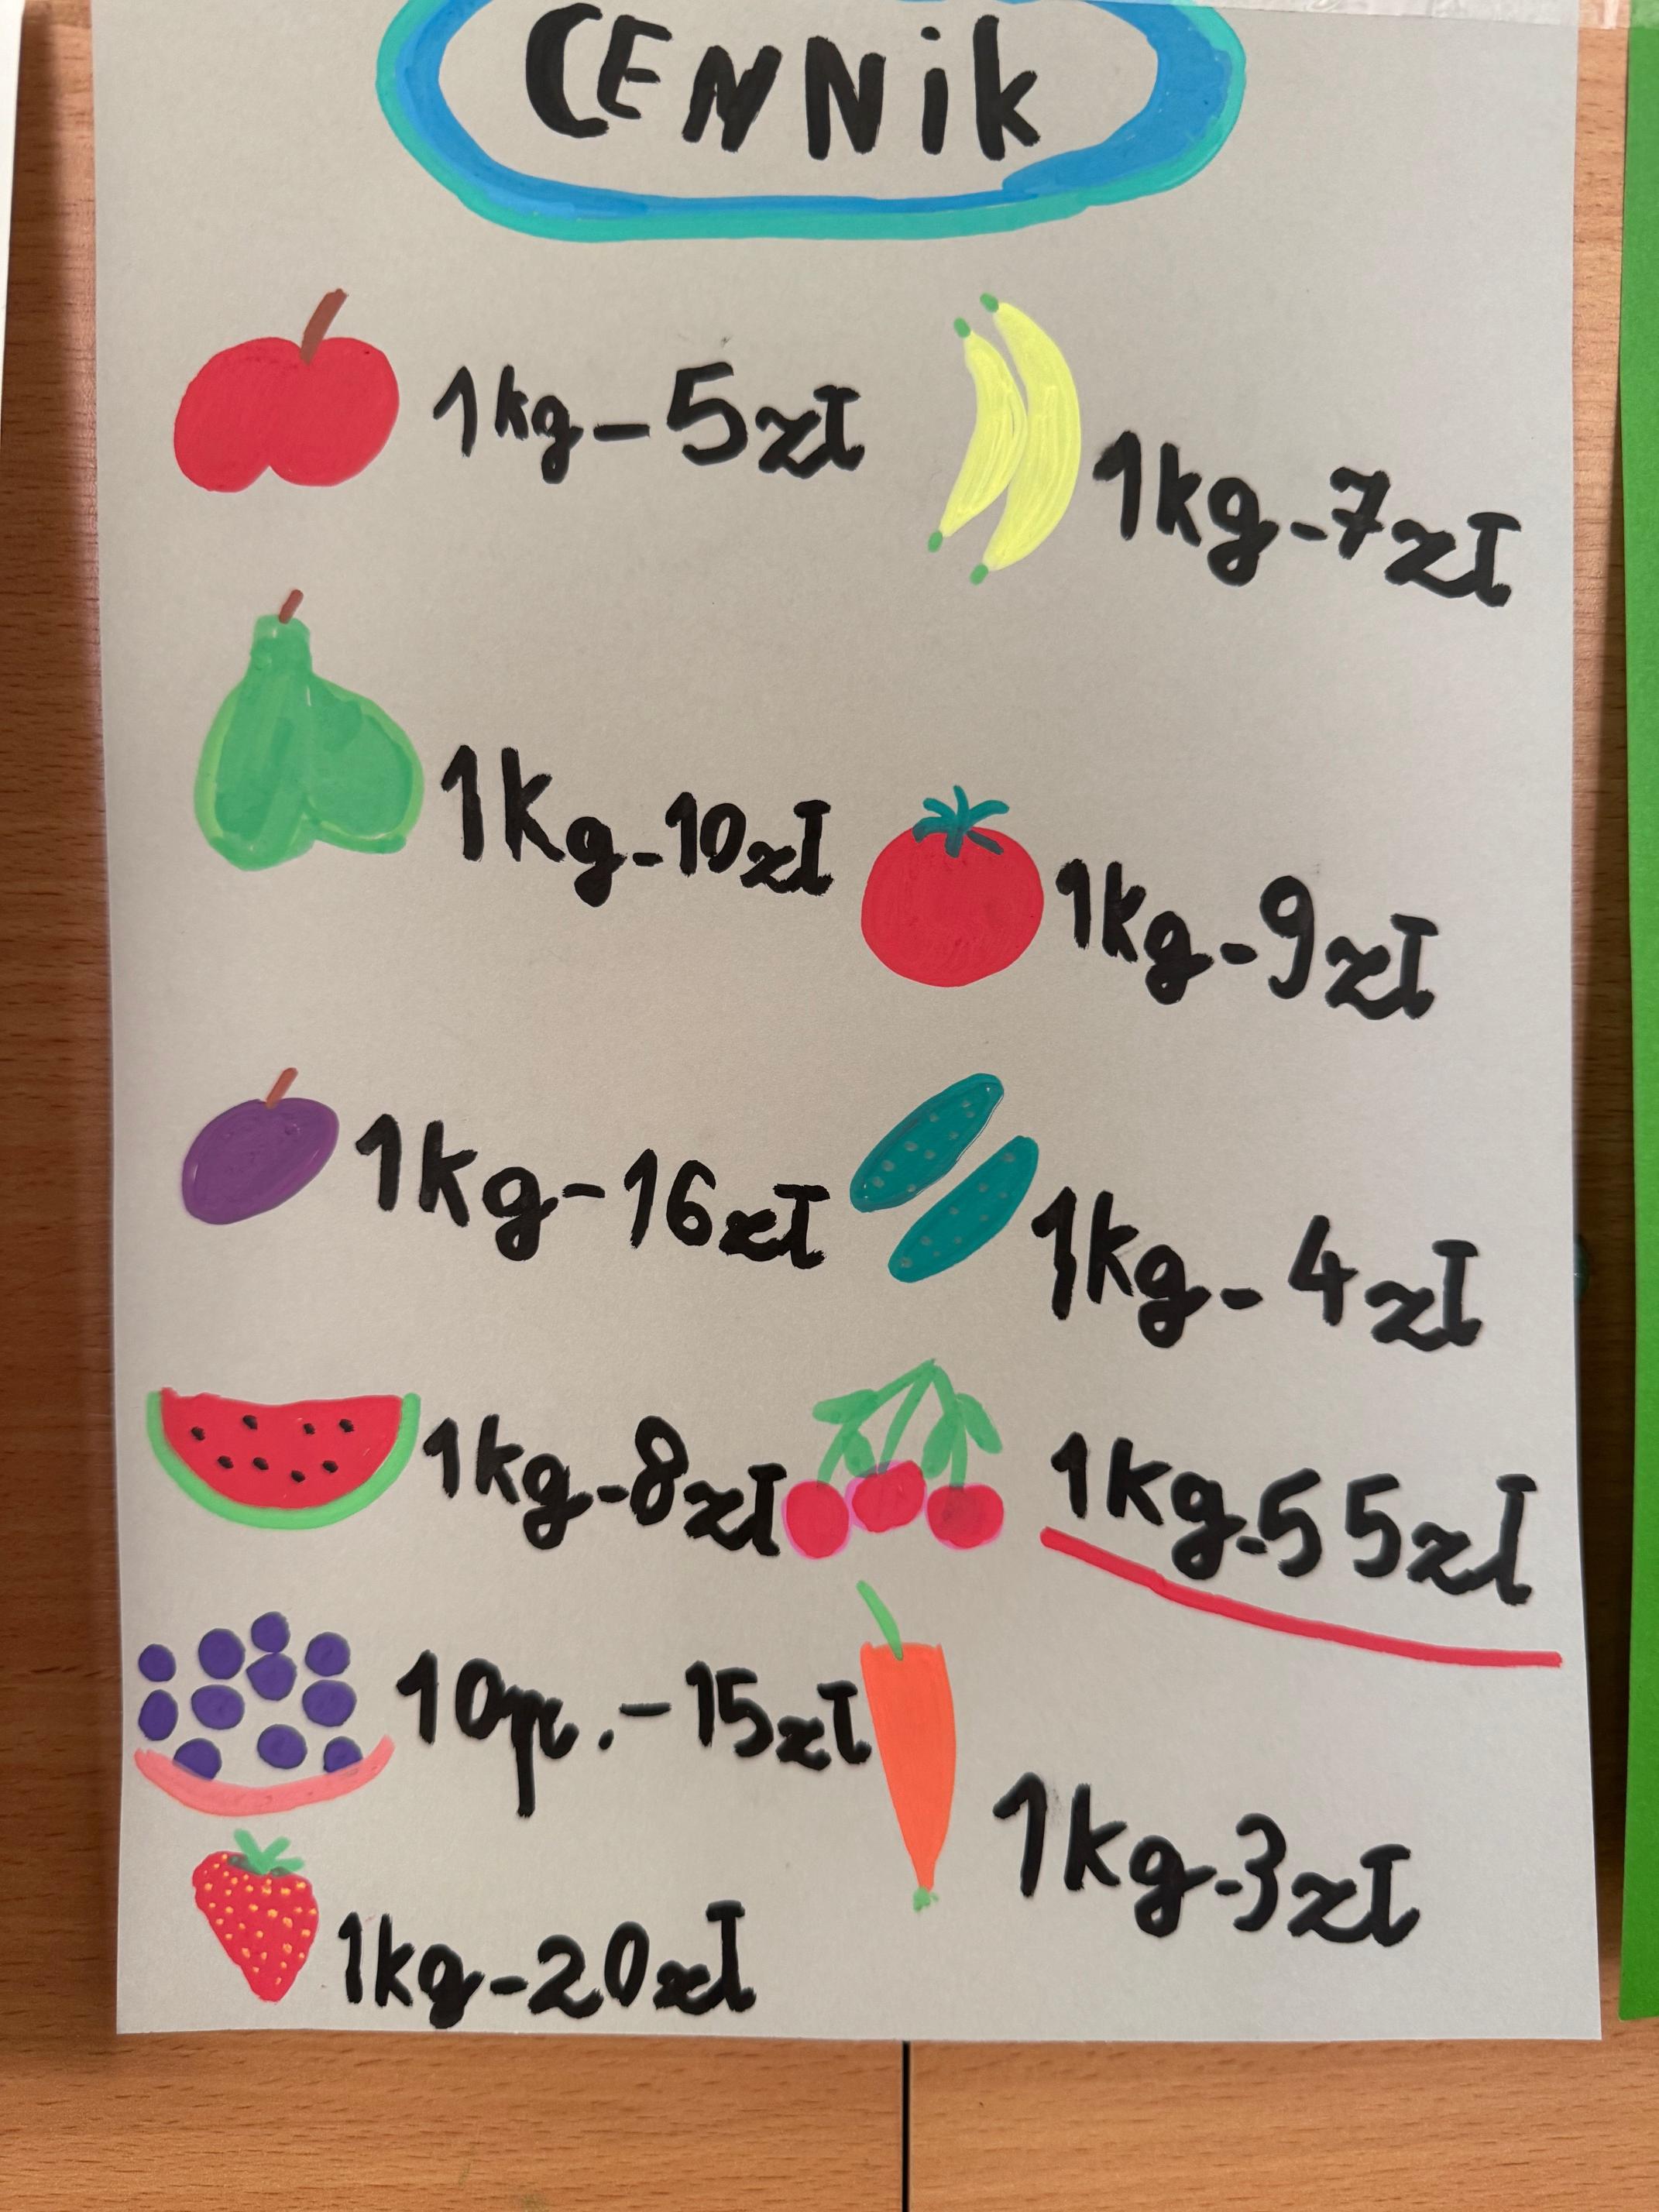 CENNik
1kg-5zł
1kg-7zł
1kg-10zł
1kg-9zł
1kg-16zł
1kg-4zł
1kg-8zł
1kg-55zł
10p.-15zł
1kg-3zł
1kg-20zł